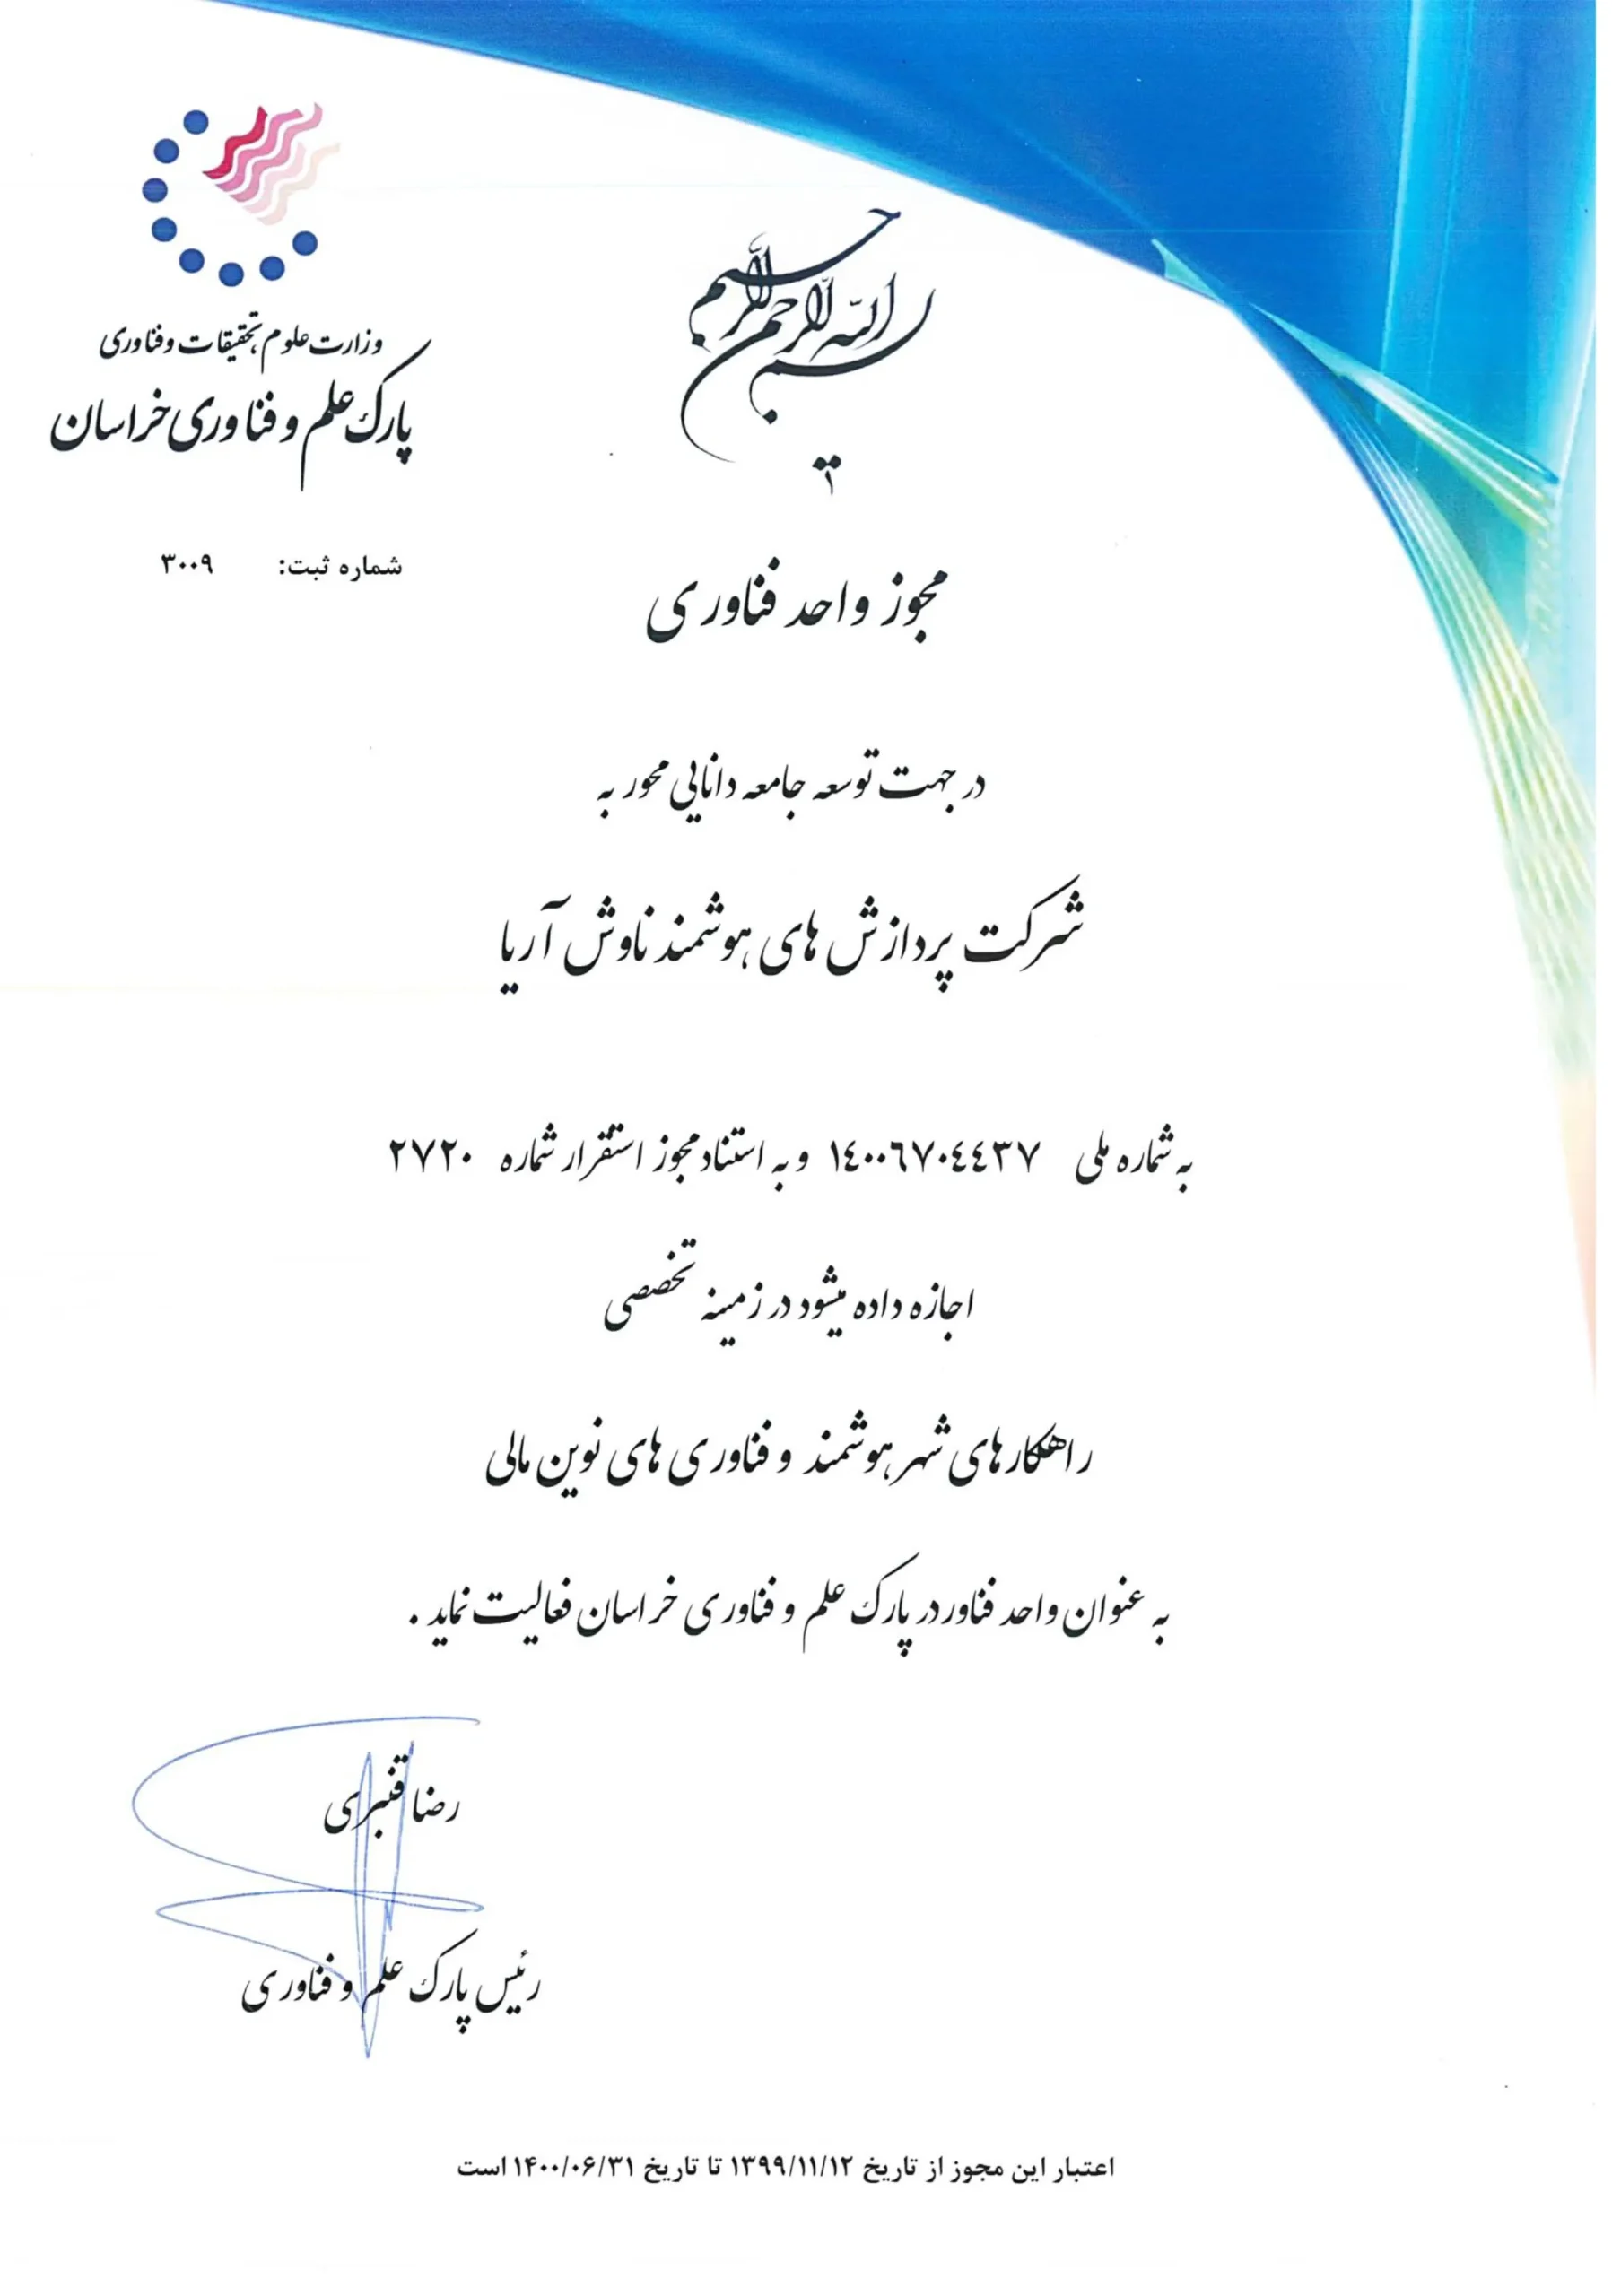 وزارت علوم، تحقیقات و فناوری
پارک علم و فناوری خراسان
شماره ثبت: ۳۰۰۹
بسم الله الرحمن الرحیم
مجوز واحد فناوری
در جهت توسعه جامعه دانایی محور به
شرکت پردازش های هوشمند ناوش آریا
به شماره ملی ۱۴۰۰۶۷۰۴۴۳۷ و به استناد مجوز استقرار شماره ۲۷۲۰
اجازه داده میشود در زمینه تخصصی
راهکارهای شهر هوشمند و فناوری های نوین مالی
به عنوان واحد فناور در پارک علم و فناوری خراسان فعالیت نماید .
رضا قنبری
رئیس پارک علم و فناوری
اعتبار این مجوز از تاریخ ۱۳۹۹/۱۱/۱۲ تا تاریخ ۱۴۰۰/۰۶/۳۱ است